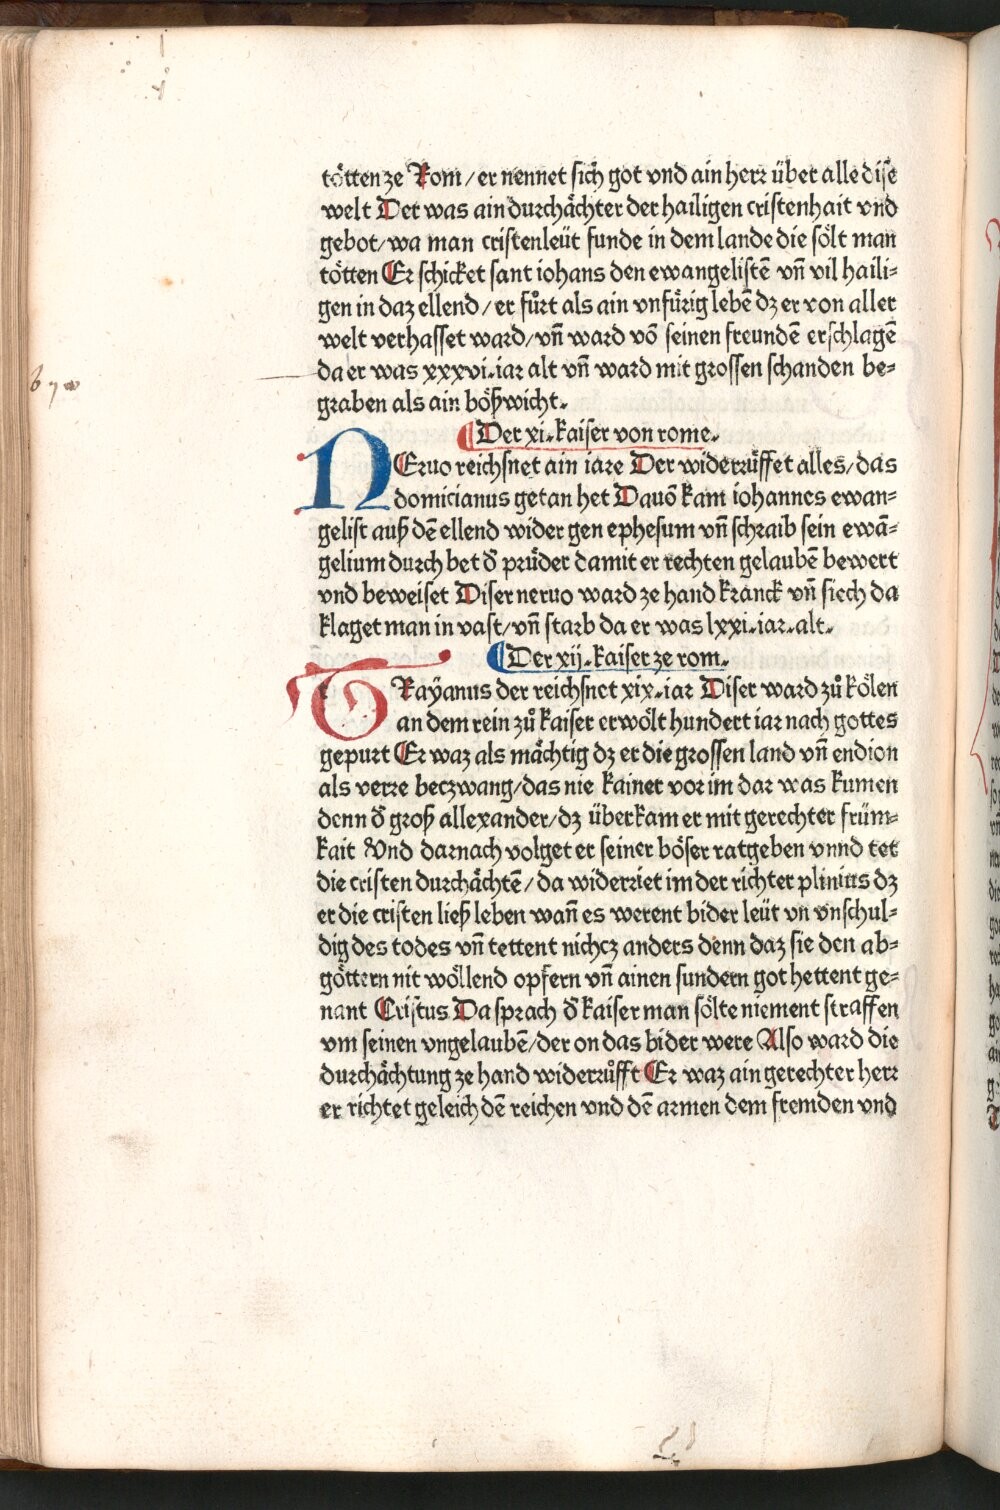 tötten ze Rom / er nennet sich got vnd ain herr über alle dise
welt Der was ain durchächter der hailigen cristenhait vnd
gebot / wa man cristenleüt funde in dem lande die sölt man
tötten Er schicket sant iohans den ewangelistē vn̄ vil haili⸗
gen in daz ellend / er fůrt als ain vnfürig lebē dz er von aller
welt verhasset ward / vn̄ ward vō seinen freundē erschlagē
da er was xxxvi. iar alt vn̄ ward mit grossen schanden be⸗
graben als ain bößwicht.
Der xi. kaiser von rome.
NEruo reichsnet ain iare Der widerrůffet alles / das
domicianus getan het Dauō kam iohannes ewan⸗
gelist auß dē ellend wider gen ephesum vn̄ schraib sein ewā⸗
gelium durch bet d̄ prüder damit er rechten gelaubē bewert
vnd beweiset Diser neruo ward ze hand kranck vn̄ siech da
klaget man in vast / vn̄ starb da er was lxxi. iar. alt.
Der xij. kaiser ze rom.
TRayanus der reichsnet xix. iar Diser ward zů kölen
an dem rein zů kaiser erwölt hundert iar nach gottes
gepurt Er waz als mächtig dz er die grossen land vn̄ endion
als verre beczwang / das nie kainer vor im dar was kumen
denn d̄ groß allexander / dz überkam er mit gerechter früm⸗
kait Vnd darnach volget er seiner böser ratgeben vnnd tet
die cristen durchächtē / da widerriet im der richter plinius dz
er die cristen ließ leben wan̄ es werent bider leüt vn vnschul⸗
dig des todes vn̄ tettent nichcz anders denn daz sie den ab⸗
göttern nit wöllend opfern vn̄ ainen sundern got hettent ge⸗
nant Cristus Da sprach d̄ kaiser man sölte niement straffen
vm seinen vngelaubē / der on das bider were Also ward die
durchächtung ze hand widerrůfft Er waz ain gerechter herr
er richtet geleich dē reichen vnd dē armen dem fremden vnd